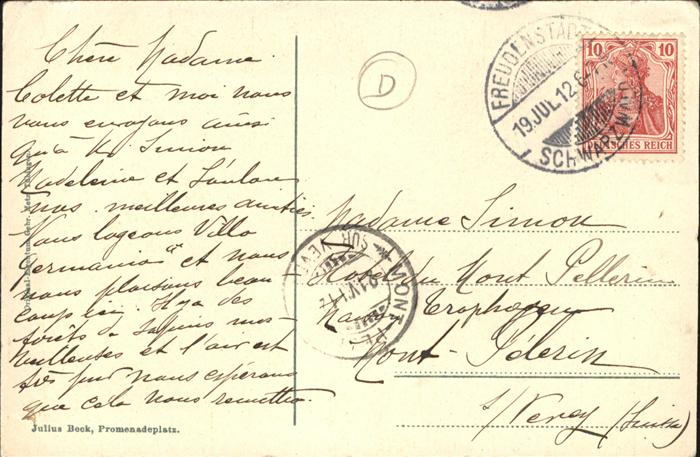 Chère Madame
Colette et moi nous
vous envoyons ainsi
qu'à M. Simon
Madeleine et
nos meilleures amitiés
Nous logeons Villa
Germania et nous
nous plaisons beau
coup ici. Il y a des
forêts de Sapins mer
veilleuses et l'air est
très pur nous espérons
que cela nous remettra.
Julius Beck, Promenadeplatz.
D
FREUDENSTADT
19.JUL.12.6-7
SCHWARZWALD
10 10
DEUTSCHES REICH
MONT
SUR VEVEY
Madame Simon
Hotel du Mont Pellerin
Mont-Pélerin
s/ Vevey (Suisse)